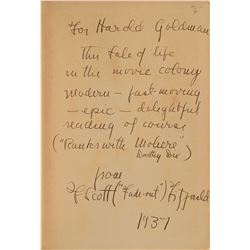 For Harold Goldman
This tale of life
in the movie colony
modern - fast-moving
- epic - delightful
reading of course
("Ranks with Moliere"
Dorothy Dix)
from
F Scott ("Fade-out") Fitzgerald
1937